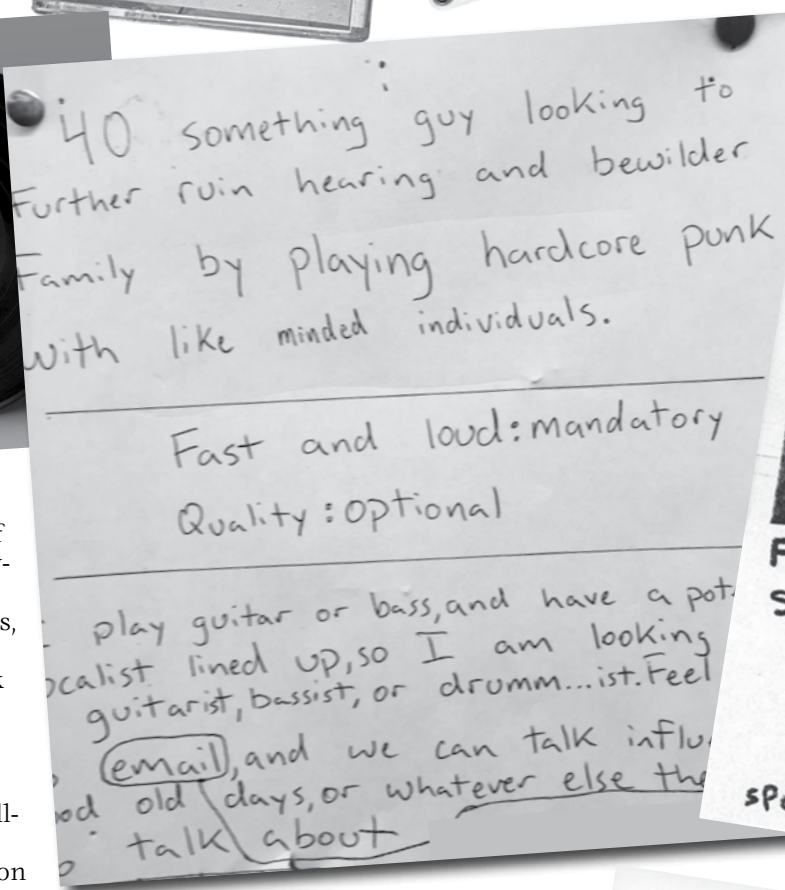 40 something guy looking to
Further ruin hearing and bewilder
Family by playing hardcore punk
with like minded individuals.
Fast and loud: mandatory
Quality: optional
play guitar or bass, and have a pot
ocalist lined up, so I am looking
guitarist, bassist, or drumm...ist. Feel
email, and we can talk influ
od old days, or whatever else the
talk about
s,
ll-
on
sp